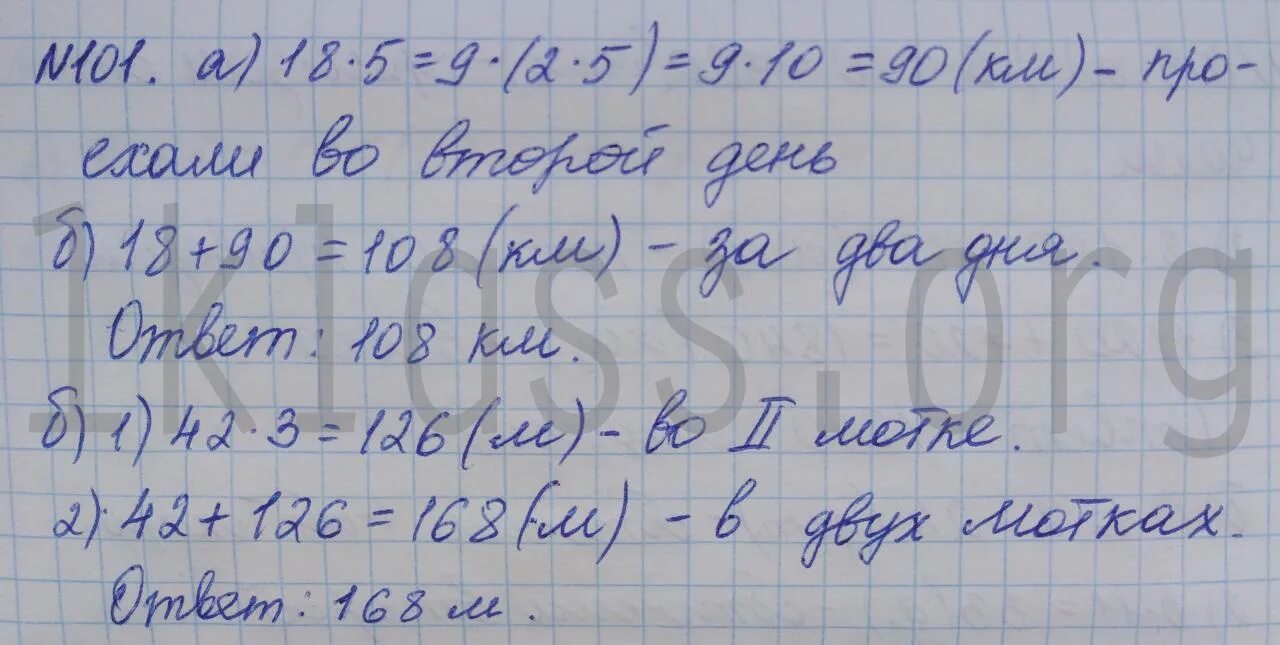 №101. а) 18·5=9·(2·5)=9·10=90(км)– про-
ехали во второй день
б) 18+90=108(км) – за два дня.
Ответ: 108 км.
б) 1) 42·3=126(м)– во II мотке.
2) 42+126=168(м) – в двух мотках.
Ответ: 168 м.
1klass.org